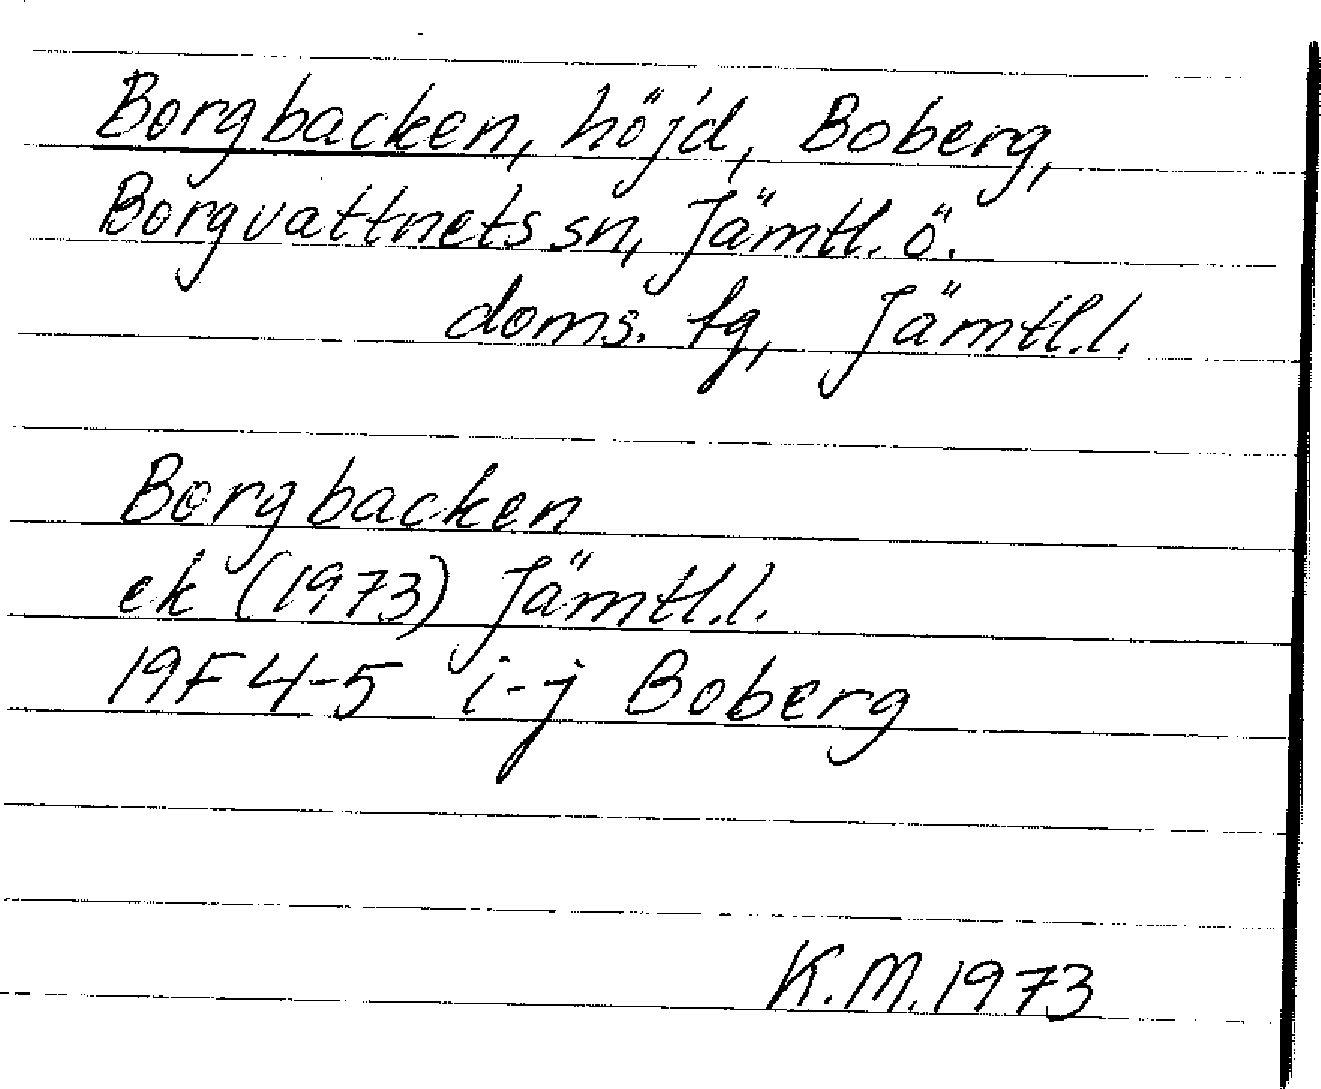 Borgbacken, höjd, Boberg,
Borgvattnets sn, Jämtl. ö.
doms. tg, Jämtl.l.
Borgbacken
ek (1973) Jämtl.l.
19F 4-5 i-j Boberg
K.M. 1973